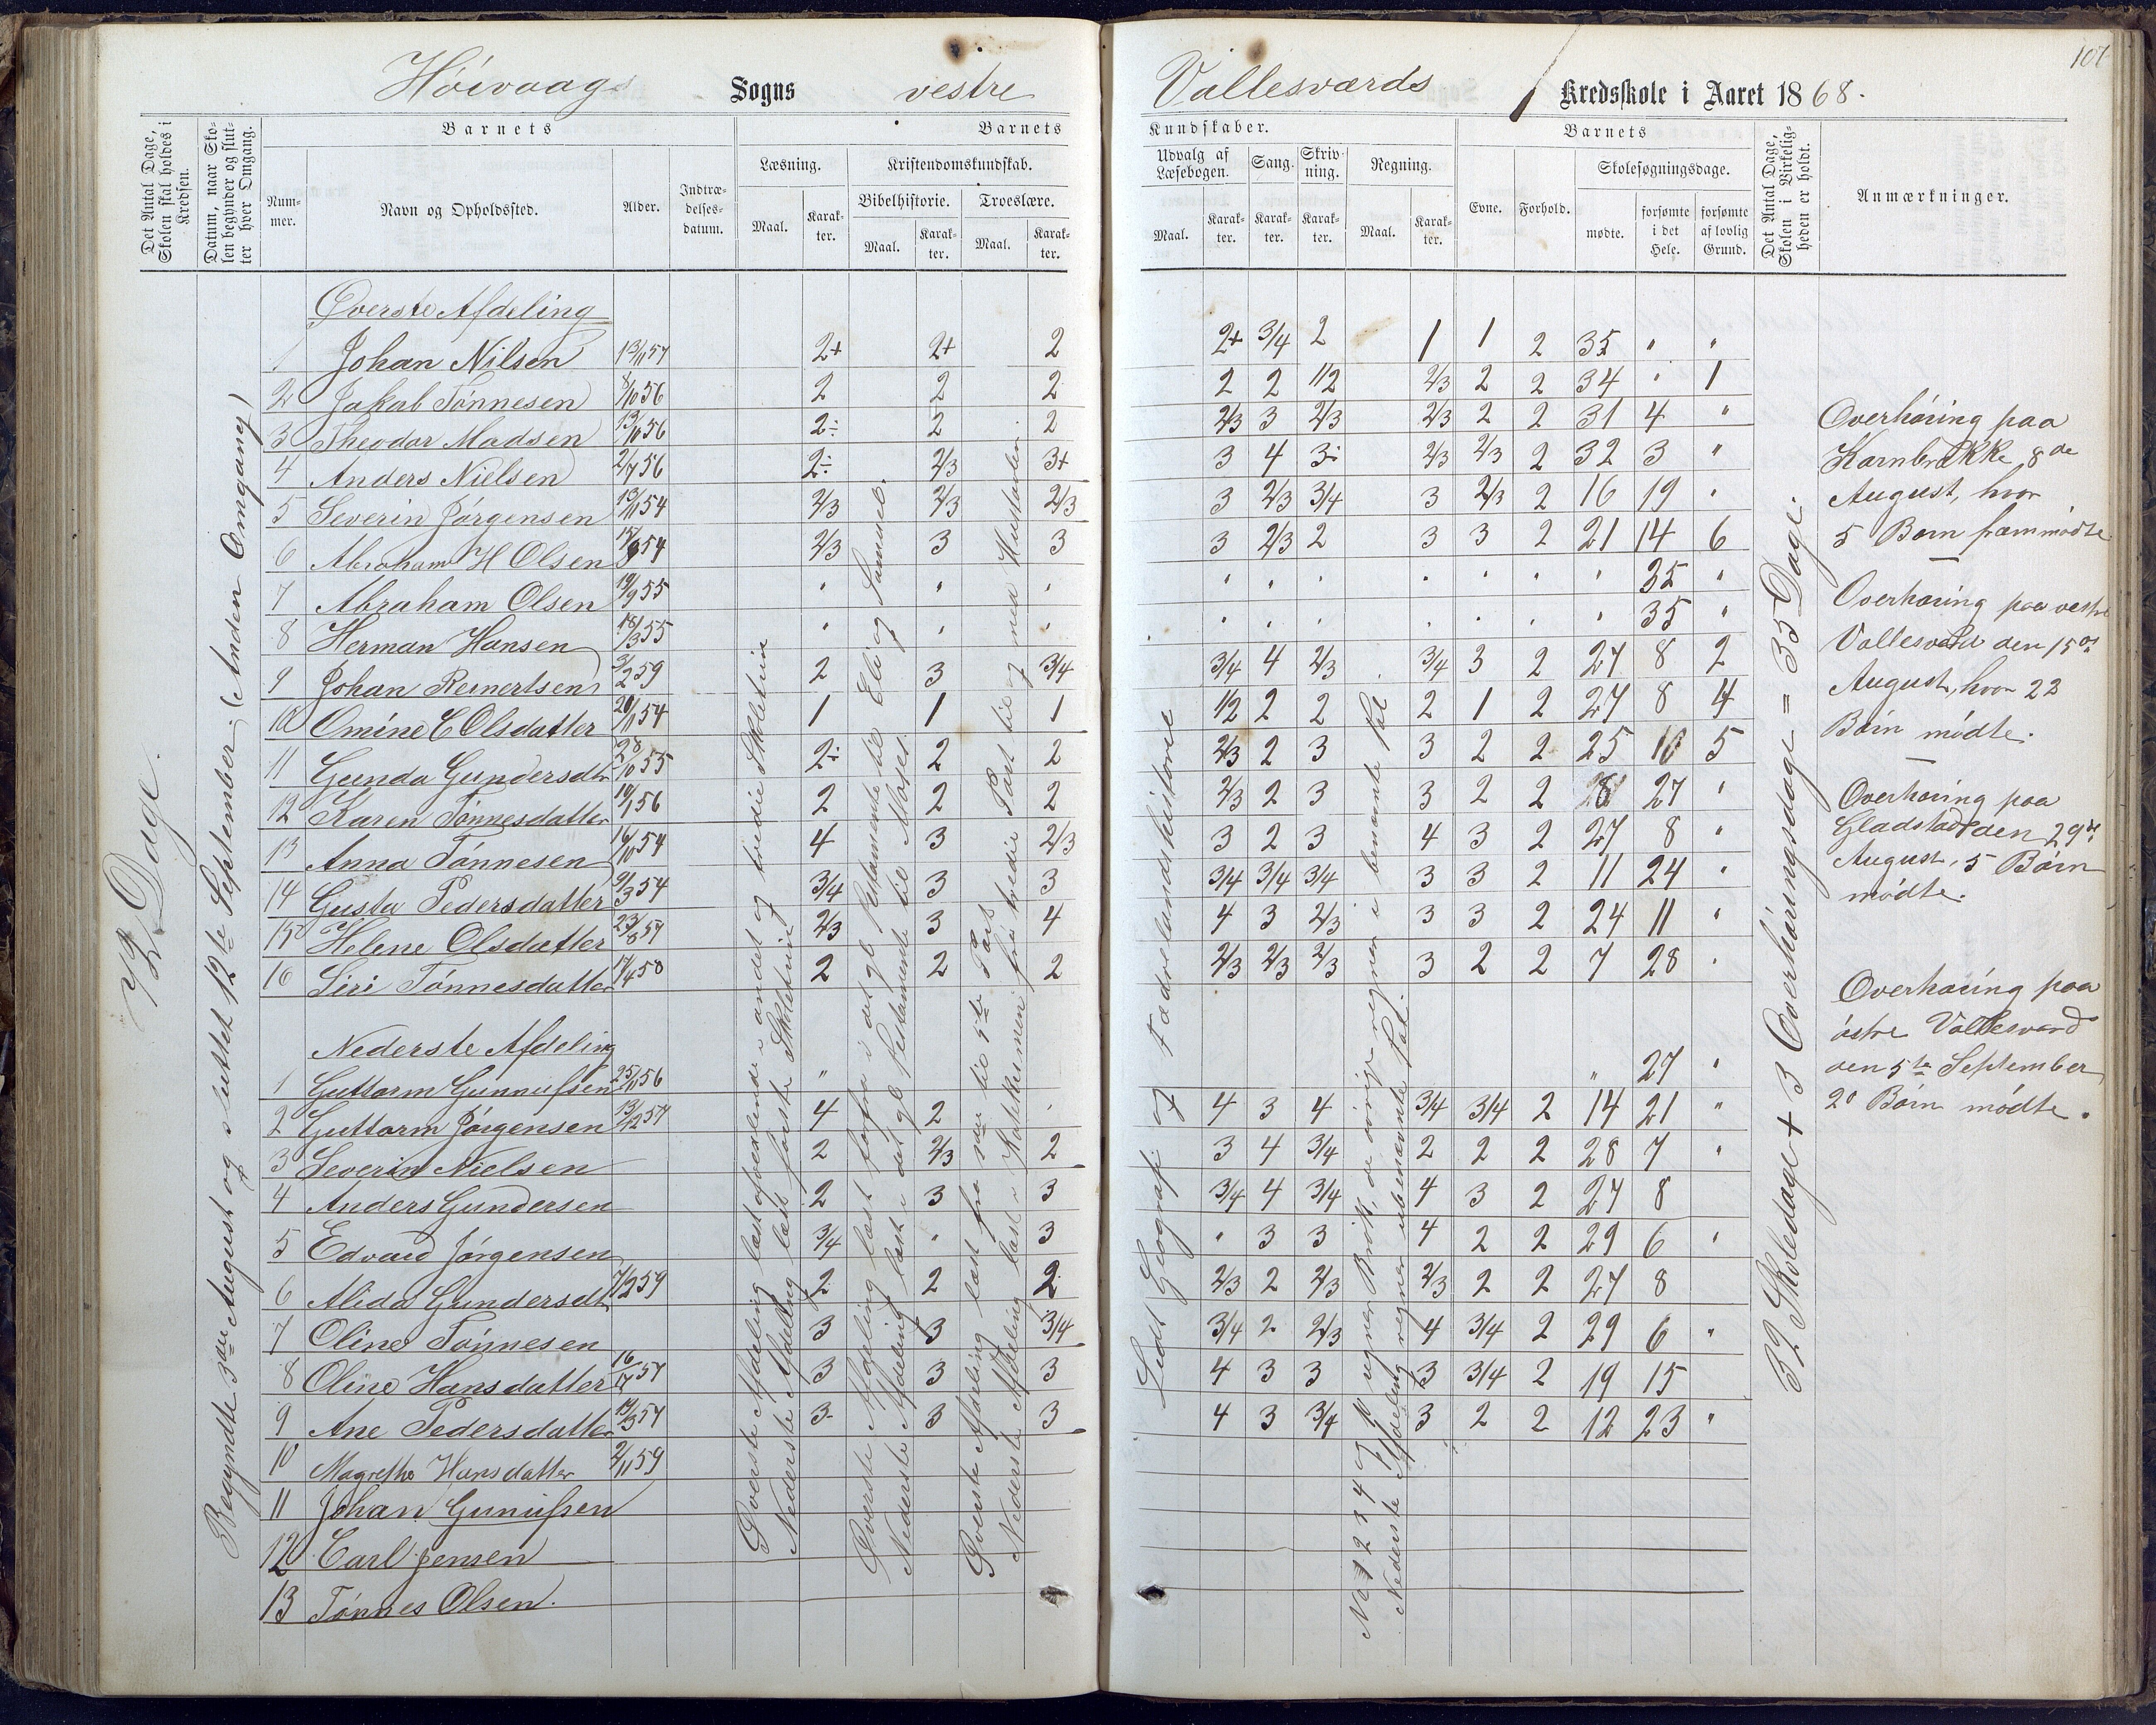 107
Høivaags Sogns vestre Vallesværds Kredsskole i Aaret 1868.
Det Antal Dage, Skolen skal holdes i Kredsen.
Datum, naar Skolen begynder og slutter hver Omgang.
Barnets
Nummer.
Navn og Opholdssted.
Alder.
Indtrædelsesdatum.
Barnets
Læsning.
Maal.
Karakter.
Kristendomskundskab.
Bibelhistorie.
Maal.
Karakter.
Troeslære.
Maal.
Karakter.
Kundskaber.
Udvalg af Læsebogen.
Maal.
Karakter.
Sang.
Karakter.
Skrivning.
Karakter.
Regning.
Maal.
Karakter.
Barnets
Evne.
Forhold.
Skolesøgningsdage.
mødte.
forsømte i det Hele.
forsømte af lovlig Grund.
Det Antal Dage, Skolen i Virkeligheden er holdt.
Anmærkninger.
72 Dage.
Begyndte 3die August og sluttet 12te September. (Anden Omgang)
Øverste Afdeling
1 Johan Nilsen 13/11 57 2+ 2+ 2 2+ 3/4 2 1 1 2 35 " "
2 Jakob Tønnesen 8/10 56 2 2 2 2 2 1/2 2/3 2 2 34 " 1
3 Theodor Madsen 13/10 56 2÷ 2 2 2/3 3 2/3 2/3 2 2 31 4 "
4 Anders Nielsen 2/7 56 2÷ 2/3 3+ 3 4 3÷ 2/3 2/3 2 32 3 "
5 Severin Jørgensen 13/11 54 2/3 2/3 2/3 3 2/3 3/4 3 2/3 2 16 19 "
6 Abraham H Olsen 54 2/3 3 3 3 2/3 2 3 3 2 21 14 6
7 Abraham Olsen 19/9 55 " " " " " " " " " " 35 "
8 Herman Hansen 18/3 55 " " " " " " " " " " 35 "
9 Johan Reinertsen 3/2 59 2 3 3/4 3/4 4 2/3 3/4 3 2 27 8 2
10 Omine C Olsdatter 20/11 54 1 1 1 1/2 2 2 2 1 2 27 8 4
11 Gunda Gundersdtr 28/10 55 2÷ 2 2 2/3 2 3 3 2 2 25 10 5
12 Karen Tønnesdatter 19/1 56 2 2 2 2/3 2 3 3 2 2 8 27 "
13 Anna Tønnesen 16/10 54 4 3 2/3 3 2 3 4 3 2 27 8 "
14 Gusta Pedersdatter 9/3 54 3/4 3 3 3/4 3/4 3/4 3 3 2 11 24 "
15 Helene Olsdatter 23/8 57 2/3 3 4 4 3 2/3 3 3 2 24 11 "
16 Siri Tønnesdatter 17/4 58 2 2 2 2/3 2/3 2/3 3 2 2 7 28 "
Nederste Afdeling
1 Guttorm Gunnufsen 25/11 56 " " 27 "
2 Guttorm Jørgensen 13/12 57 4 2 " 4 3 4 3/4 3/4 2 14 21 "
3 Severin Nielsen 2 2/3 2 3 4 3/4 2 2 2 28 7 "
4 Anders Gundersen 2 3 3 3/4 4 3/4 4 3 2 27 8
5 Edvard Jørgensen 3/4 " 3 " 3 3 4 2 2 29 6 "
6 Alida Gundersdtr 7/12 59 2 2 2 2/3 2 2/3 2/3 2 2 27 8
7 Oline Tønnesen 3 3 3/4 3/4 2 2/3 4 3/4 2 29 6 "
8 Oline Hansdatter 57 3 3 3 4 3 3 3 3/4 2 19 15
9 Ane Pedersdatter 19/3 57 3 3 3 4 3 3/4 3 2 2 12 23 "
10 Magrethe Hansdatter 2/11 59
11 Johan Gunufsen
12 Carl Jensen
13 Tønnes Olsen.
Øverste Afdeling læst afvexlende i andet og tredie Skoletrin
Nederste Afdeling læst første Skoletrin
Øverste Afdeling læst forfra i det gl Testamente til Eli og Samuel.
Nederste Afdeling læst i det gl Testamente til Moses.
Øverste Afdeling læst fra 2den til 5te Part
Nederste Afdeling læst i Katekismen fra tredie Part til og med Hustavlen.
Lidt Geografi og Fædrelandshistorie
No 1 2 3 4 og 10 regner Brøk, de øvrige regner i benævnte Tal
Nederste Afdeling regner ubenævnte Tal.
32 Skoledage + 3 Overhøringsdage = 35 Dage.
Overhøring paa
Kornbrække 8de
August, hvor
5 Børn fremmødte
Overhøring paa vestre
Vallesværd den 15de
August, hvor 22
Børn mødte.
Overhøring paa
Gladstad den 29de
August, 5 Børn
mødte.
Overhøring paa
østre Vallesværd
den 5te September
20 Børn mødte.